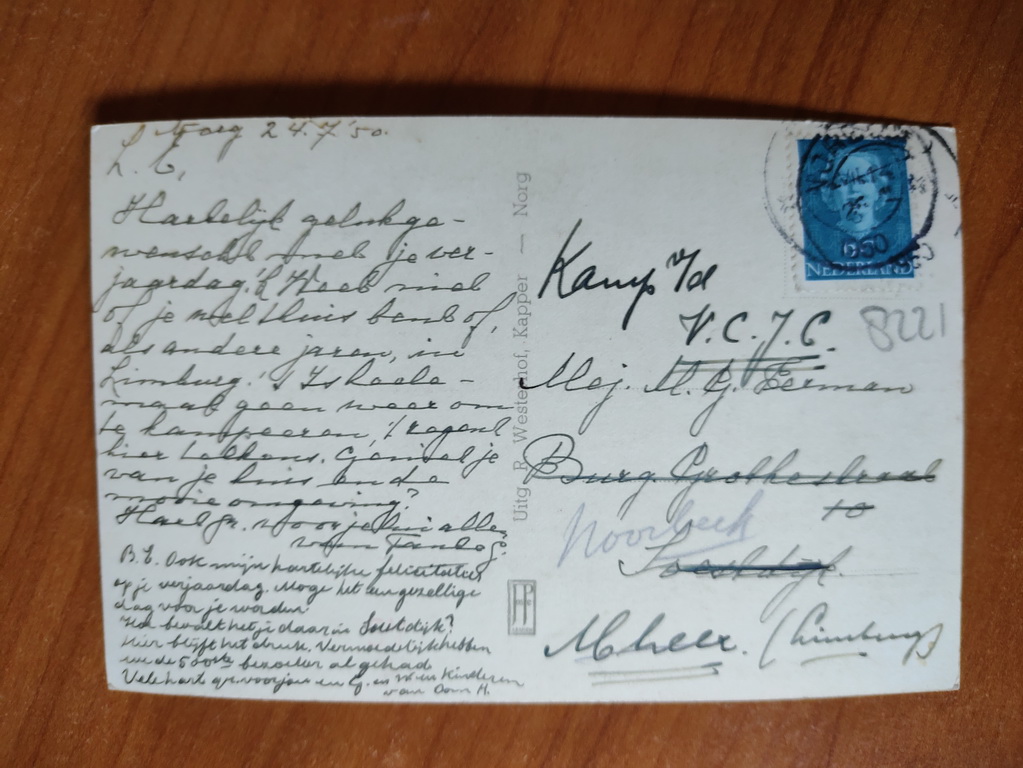 Norg 24.7.'50.
L. C,
Hartelijk gelukge-
wenscht met je ver-
jaardag! Ik Weet niet
of je wel thuis bent of,
als andere jaren, in
Limburg. 't Is heele-
maal geen weer om
te kampeeren, 't regent
hier telkens. Geniet je
van je huis en de
mooie omgeving?
Hartel. gr. voor jelui allen
van Tante G.
B. C. Ook mijn hartelijke felicitaties
op je verjaardag. Moge het een gezellige
dag voor je worden.
Hoe bevalt het je daar in Soestdijk?
Hier blijft het druk. Vermoedelijk hebben
we de 500ste bezoeker al gehad
Vele hart. gr. voor jou en G. en kinderen
van Oom H.
Uitg. R. Westerhof, Kapper — Norg
NORG
6
NEDERLAND
Kamp v/d
V.C.J.C.
8221
Mej. M. G. Eerman
Burg Grothestraat
10
Noorbeek
Soestdijk.
Mheer. (Limburg)